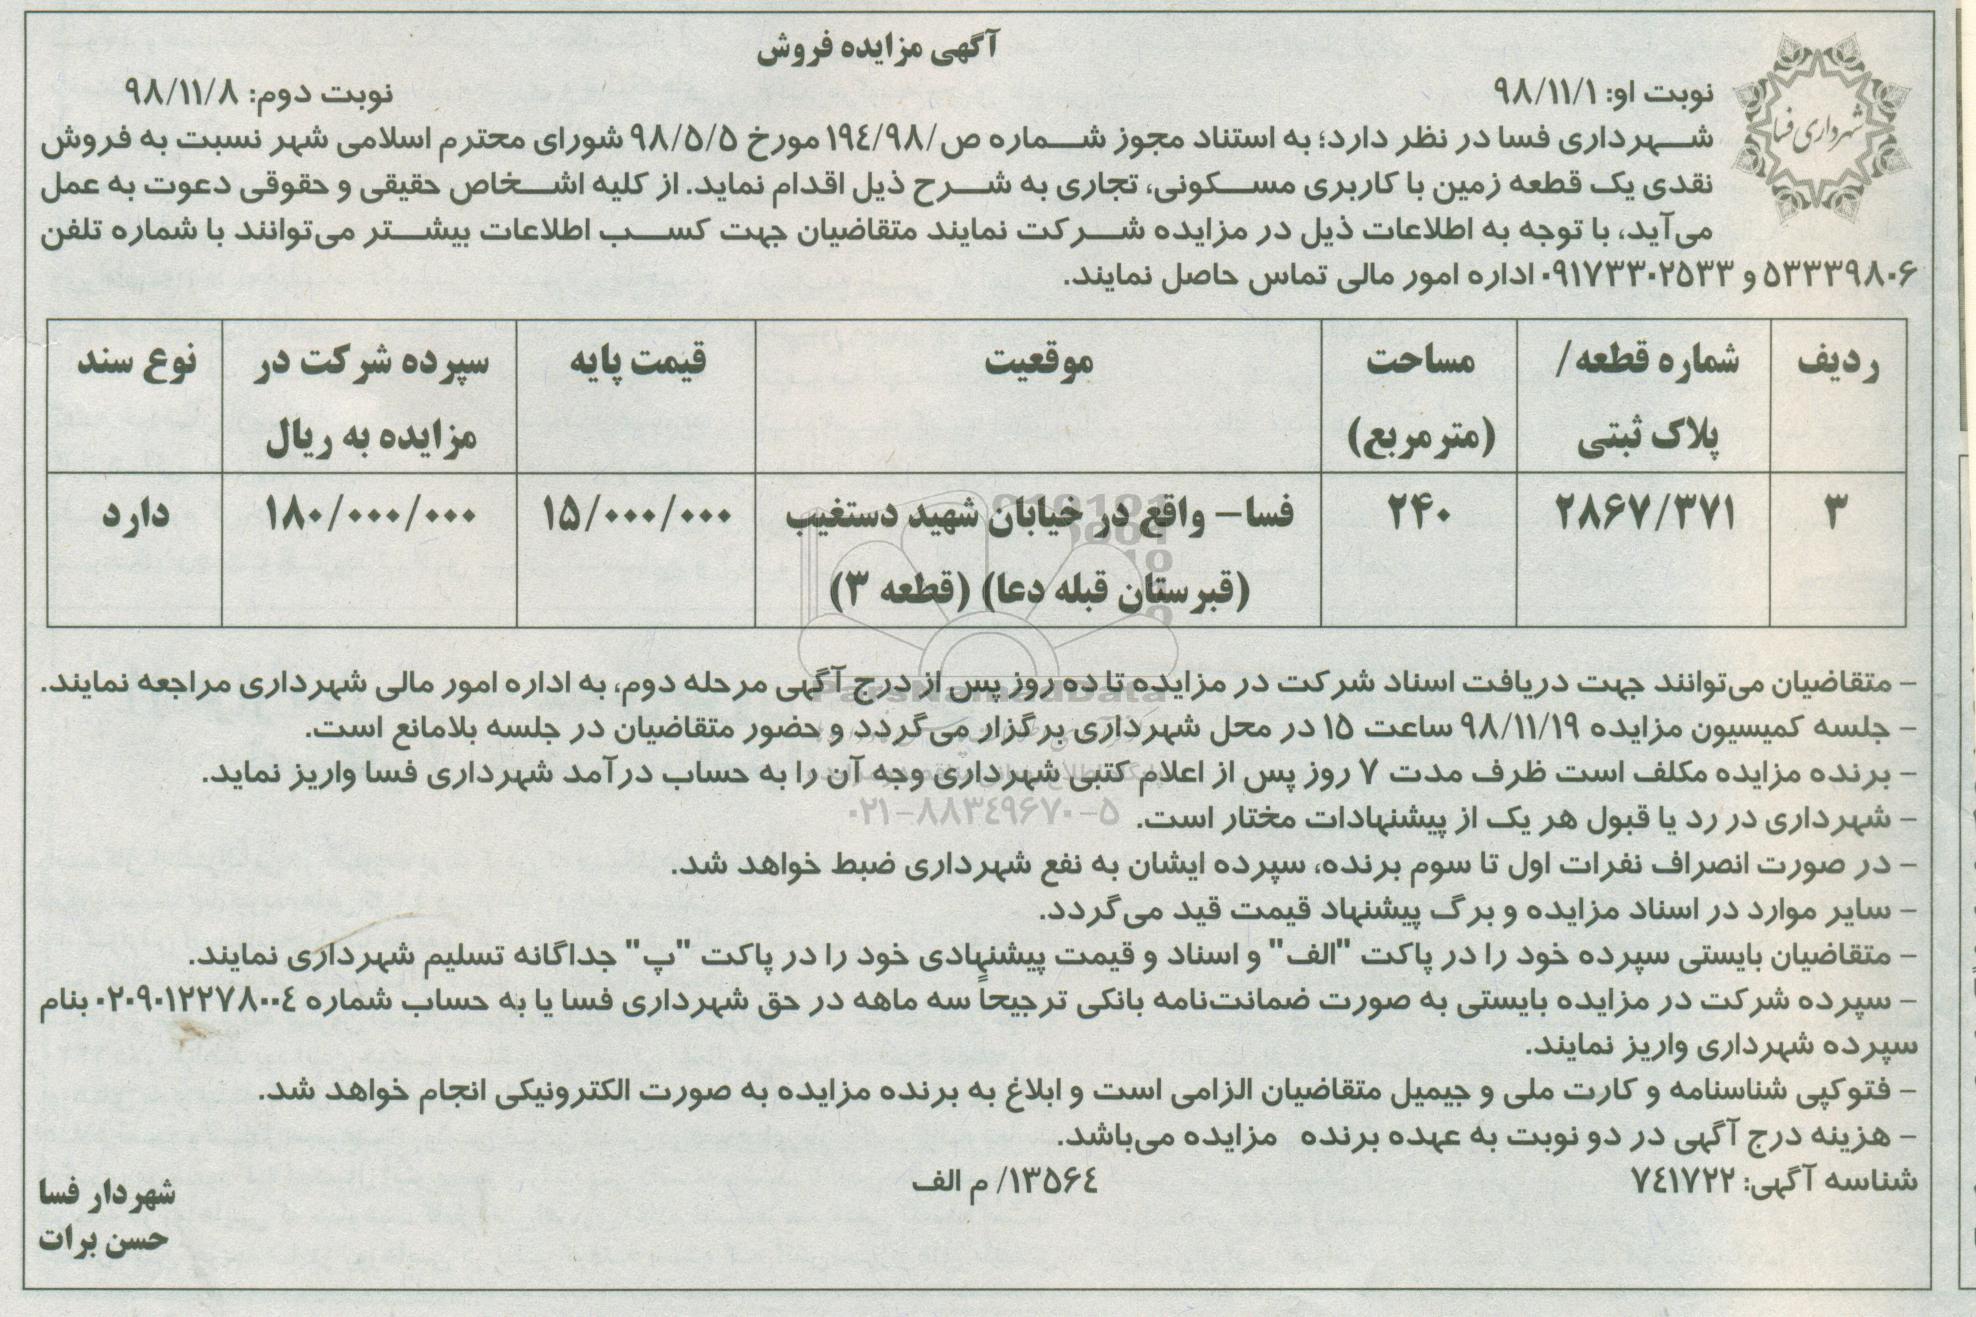 آگهی مزایده فروش
شهرداری فسا
نوبت او: ۹۸/۱۱/۱
نوبت دوم: ۹۸/۱۱/۸
شهرداری فسا در نظر دارد؛ به استناد مجوز شماره ص/۱۹۴/۹۸ مورخ ۹۸/۵/۵ شورای محترم اسلامی شهر نسبت به فروش
نقدی یک قطعه زمین با کاربری مسکونی، تجاری به شرح ذیل اقدام نماید. از کلیه اشخاص حقیقی و حقوقی دعوت به عمل
می‌آید، با توجه به اطلاعات ذیل در مزایده شرکت نمایند متقاضیان جهت کسب اطلاعات بیشتر می‌توانند با شماره تلفن
۵۳۳۳۹۸۰۶ و ۰۹۱۷۳۳۰۲۵۳۳ اداره امور مالی تماس حاصل نمایند.
ردیف
شماره قطعه/
پلاک ثبتی
مساحت
(مترمربع)
موقعیت
قیمت پایه
سپرده شرکت در
مزایده به ریال
نوع سند
۳
۲۸۶۷/۳۷۱
۲۴۰
فسا- واقع در خیابان شهید دستغیب
(قبرستان قبله دعا) (قطعه ۳)
۱۵/۰۰۰/۰۰۰
۱۸۰/۰۰۰/۰۰۰
دارد
- متقاضیان می‌توانند جهت دریافت اسناد شرکت در مزایده تا ده روز پس از درج آگهی مرحله دوم، به اداره امور مالی شهرداری مراجعه نمایند.
ParsNamadData
- جلسه کمیسیون مزایده ۹۸/۱۱/۱۹ ساعت ۱۵ در محل شهرداری برگزار می‌گردد و حضور متقاضیان در جلسه بلامانع است.
- برنده مزایده مکلف است ظرف مدت ۷ روز پس از اعلام کتبی شهرداری وجه آن را به حساب درآمد شهرداری فسا واریز نماید.
۰۲۱-۸۸۳۴۹۶۷۰-۵
- شهرداری در رد یا قبول هر یک از پیشنهادات مختار است.
- در صورت انصراف نفرات اول تا سوم برنده، سپرده ایشان به نفع شهرداری ضبط خواهد شد.
- سایر موارد در اسناد مزایده و برگ پیشنهاد قیمت قید می‌گردد.
- متقاضیان بایستی سپرده خود را در پاکت "الف" و اسناد و قیمت پیشنهادی خود را در پاکت "پ" جداگانه تسلیم شهرداری نمایند.
- سپرده شرکت در مزایده بایستی به صورت ضمانت‌نامه بانکی ترجیحاً سه ماهه در حق شهرداری فسا یا به حساب شماره ۰۲۰۹۰۱۲۲۷۸۰۰۴ بنام
سپرده شهرداری واریز نمایند.
- فتوکپی شناسنامه و کارت ملی و جیمیل متقاضیان الزامی است و ابلاغ به برنده مزایده به صورت الکترونیکی انجام خواهد شد.
- هزینه درج آگهی در دو نوبت به عهده برنده مزایده می‌باشد.
شناسه آگهی: ۷۴۱۷۲۲
۱۳۵۶۴/ م الف
شهردار فسا
حسن برات